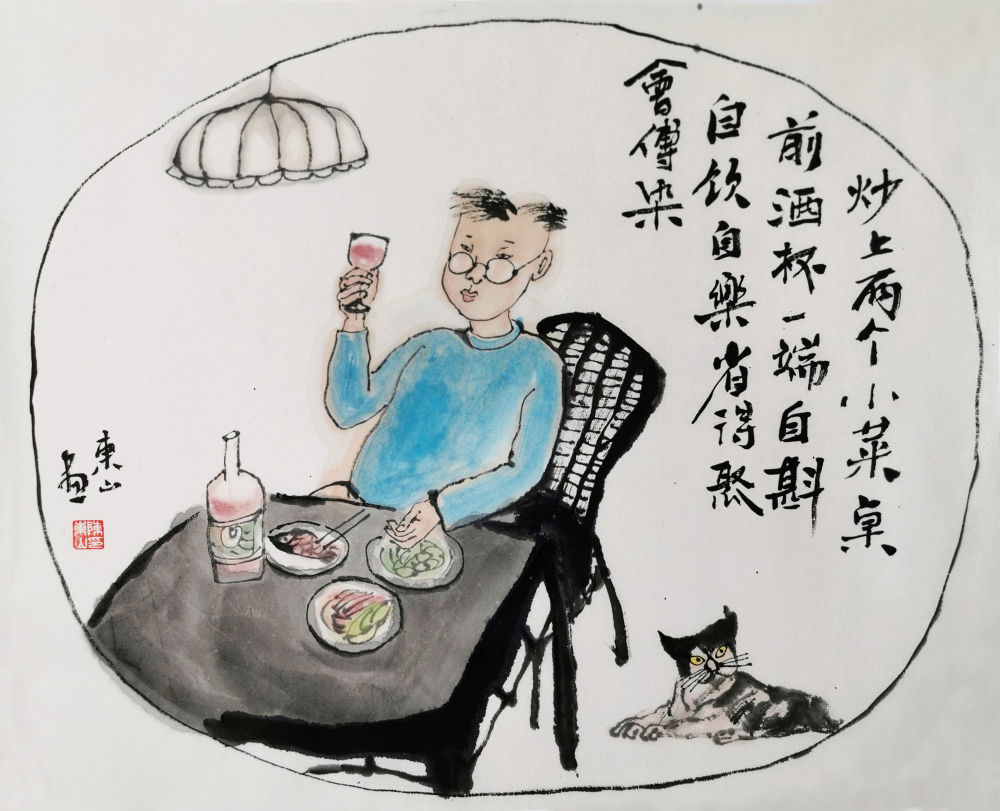 炒上两个小菜桌
前酒杯一端自斟
自饮自樂省得聚
會傳染
東山
畫